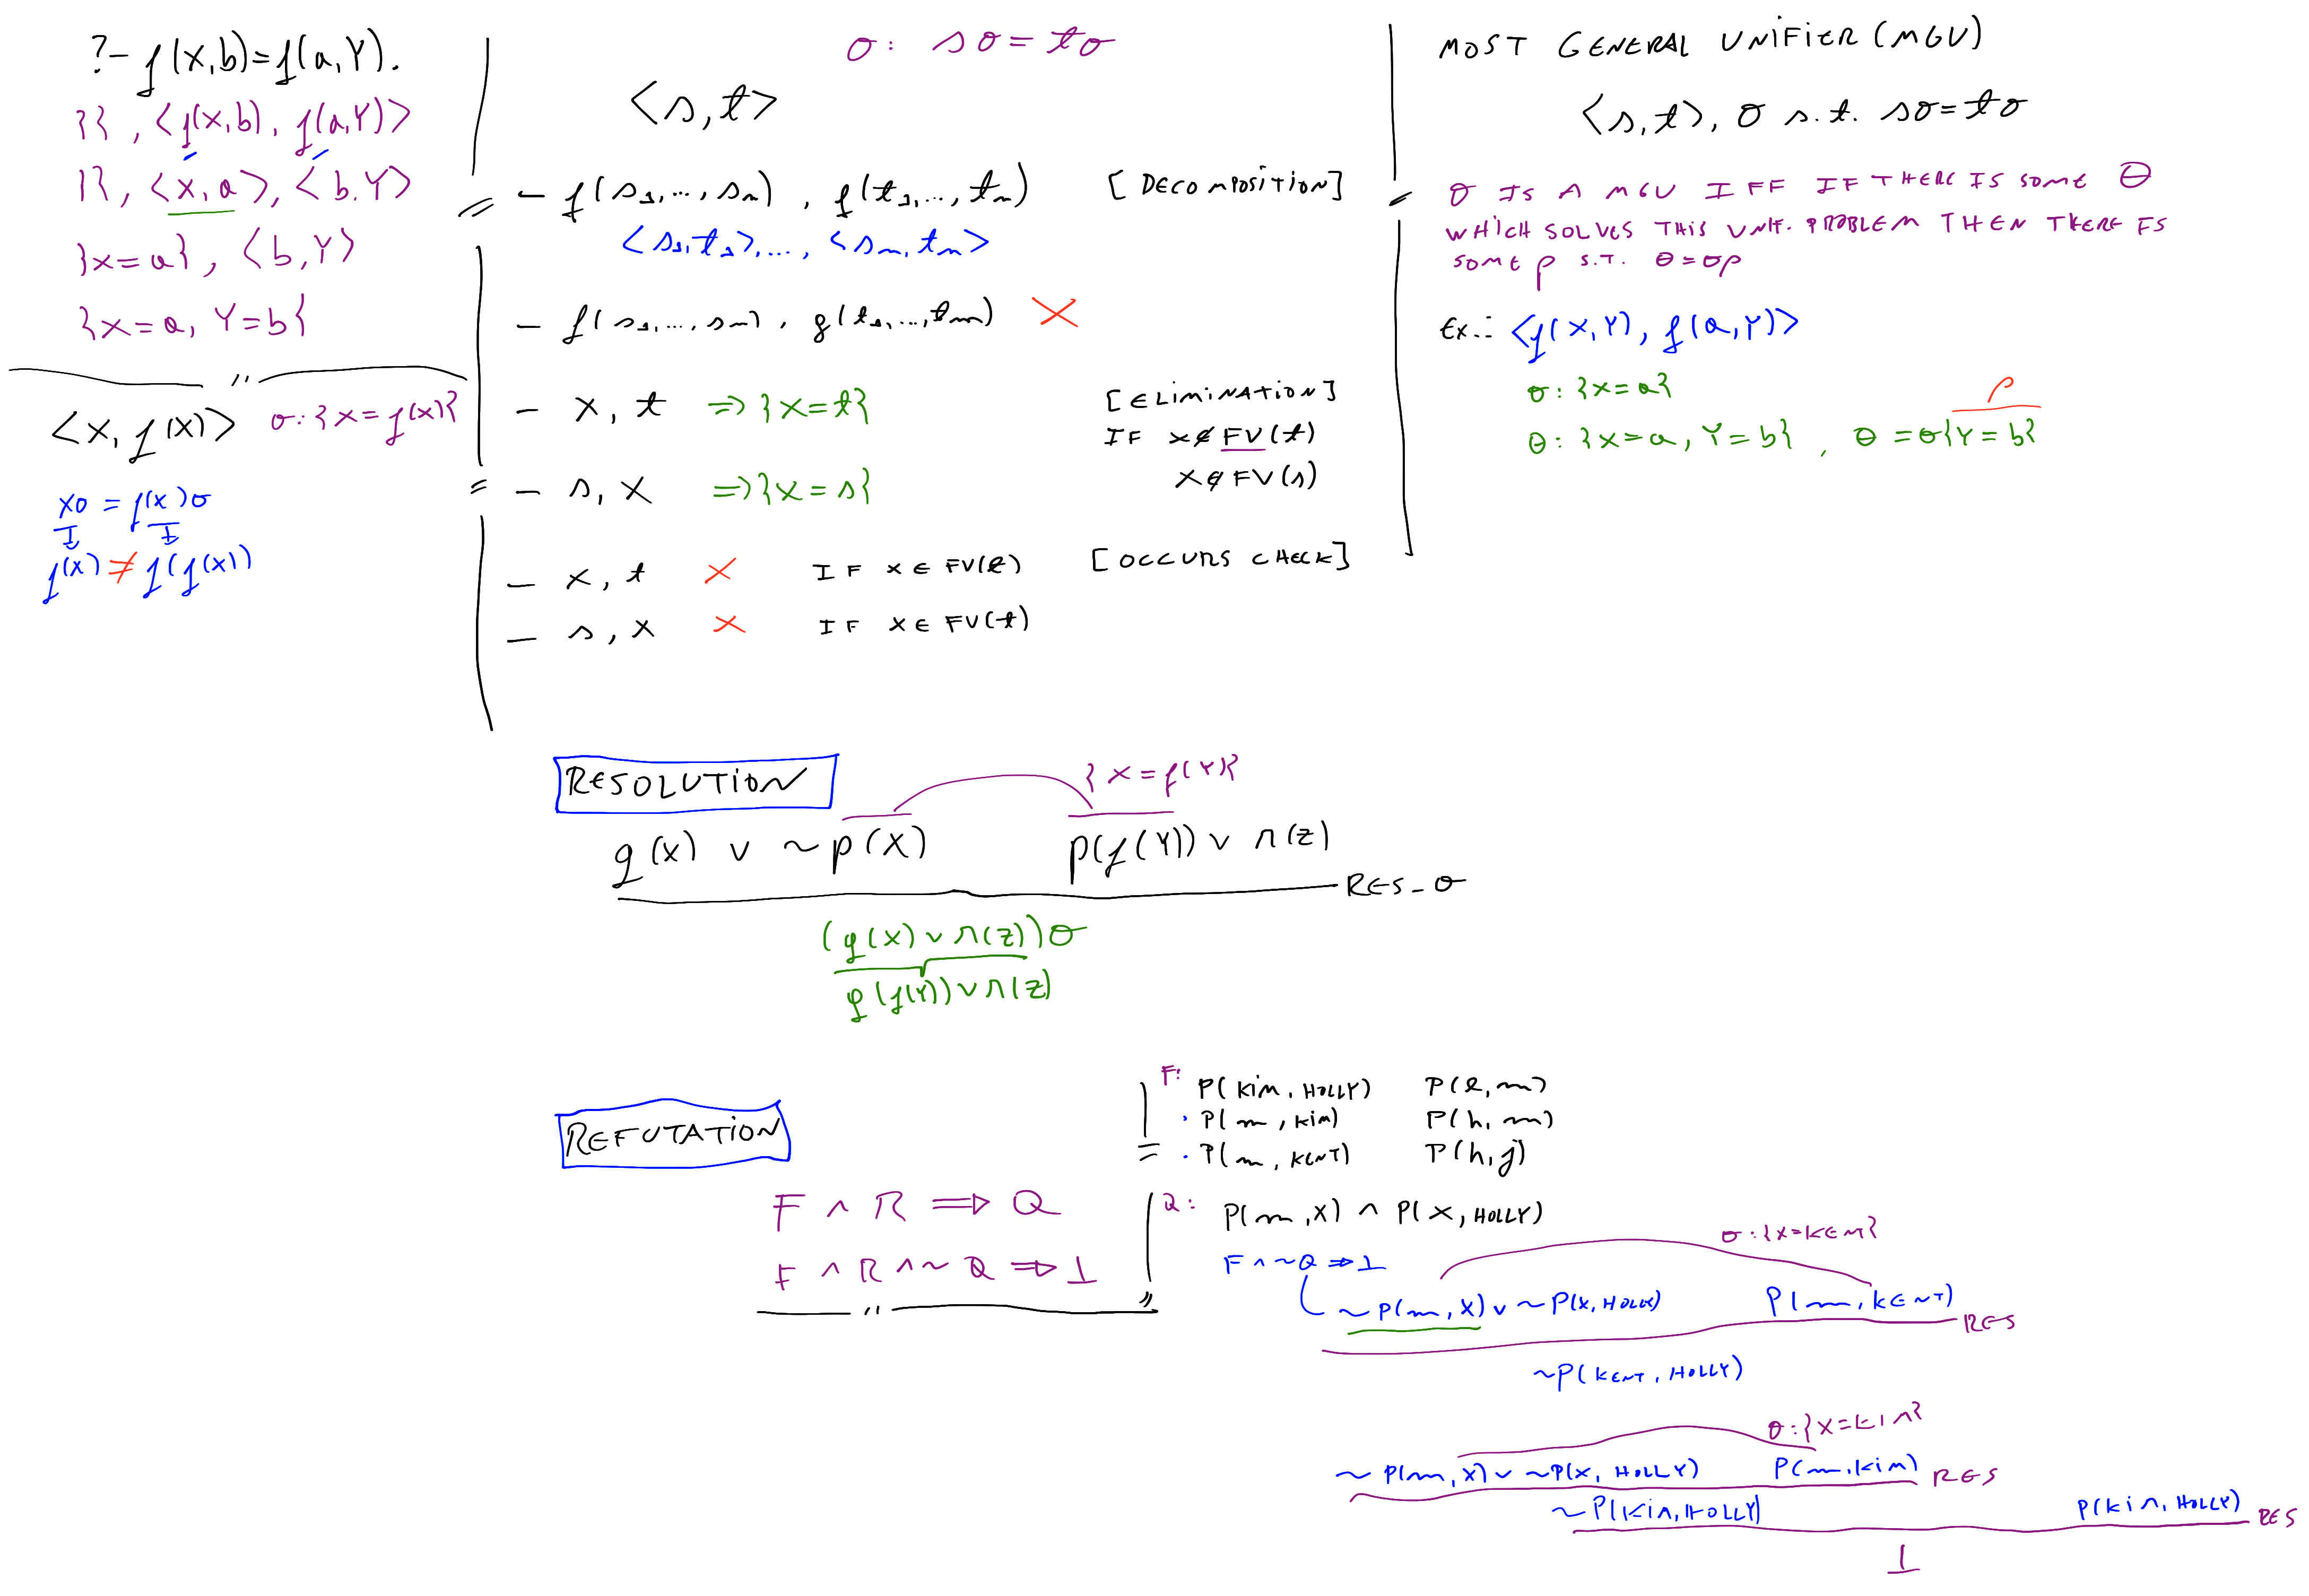 ?- f(X,b)=f(a,Y).
{}, <f(X,b), f(a,Y)>
{}, <X,a>, <b,Y>
{X=a}, <b,Y>
{X=a, Y=b}
<X, f(X)> σ:{X=f(X)}
Xσ = f(X)σ
f(X) ≠ f(f(X))
σ: sσ=tσ
<s,t>
- f(s1,...,sn), f(t1,...,tn) [DECOMPOSITION]
<s1,t1>,..., <sn,tn>
- f(s1,...,sn), g(t1,...,tm) X
- X, t => {X=t} [ELIMINATION]
IF X∉FV(t)
- s, X => {X=s} X∉FV(s)
- X, t X IF X∈FV(t) [OCCURS CHECK]
- s, X X IF X∈FV(t)
MOST GENERAL UNIFIER (MGU)
<s,t>, σ s.t. sσ=tσ
σ IS A MGU IFF IF THERE IS SOME θ
WHICH SOLVES THIS UNIF. PROBLEM THEN THERE IS
SOME ρ S.T. θ=σρ
Ex.: <f(X,Y), f(a,Y)>
σ: {X=a} ρ
θ: {X=a, Y=b}, θ=σ{Y=b}
RESOLUTION {X=f(Y)}
q(X) ∨ ~p(X) p(f(Y)) ∨ r(Z)
RES-σ
(q(X) ∨ r(Z))σ
q(f(Y)) ∨ r(Z)
REFUTATION
F ∧ R => Q
F ∧ R ∧ ~Q => ⊥
F: P(KIM, HOLLY) P(l,m)
· P(m, KIM) P(h,m)
· P(m, KENT) P(h,j)
Q: P(m,X) ∧ P(X, HOLLY)
F ∧ ~Q => ⊥ σ:{X=KENT}
~P(m,X) ∨ ~P(X, HOLLY) P(m, KENT)
RES
~P(KENT, HOLLY)
σ:{X=KIM}
~P(m,X) ∨ ~P(X, HOLLY) P(m,KIM) RES
~P(KIM,HOLLY) P(KIM, HOLLY) RES
⊥